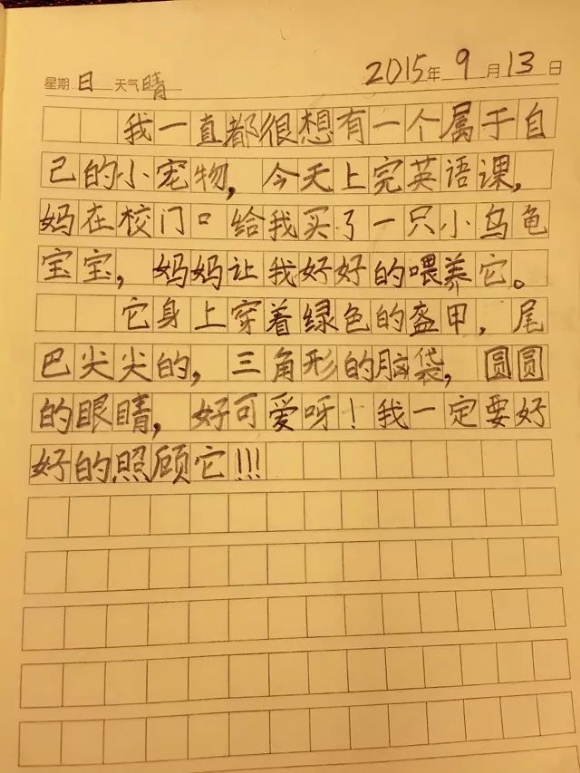 星期日 天气晴 2015年9月13日
我一直都很想有一个属于自
己的小宠物，今天上完英语课，
妈在校门口给我买了一只小乌龟
宝宝，妈妈让我好好的喂养它。
它身上穿着绿色的盔甲，尾
巴尖尖的，三角形的脑袋，圆圆
的眼睛，好可爱呀！我一定要好
好的照顾它!!!